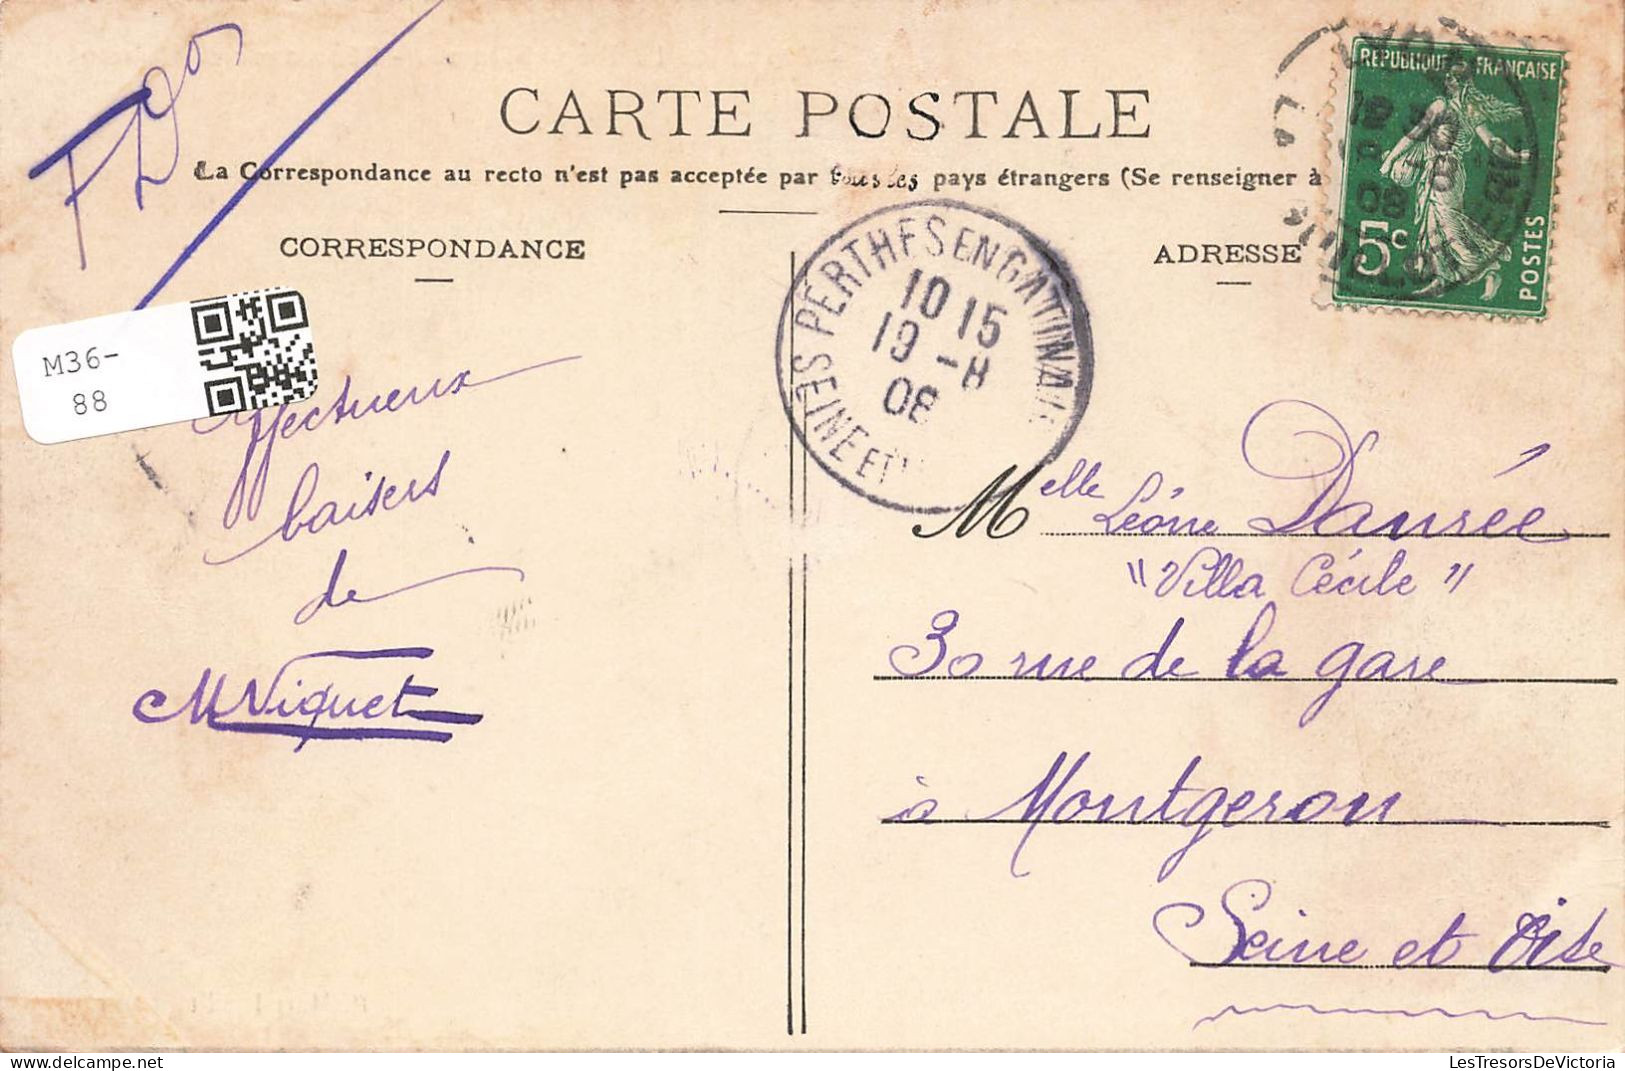 CARTE POSTALE
La Correspondance au recto n'est pas acceptée par tous les pays étrangers (Se renseigner à
CORRESPONDANCE
ADRESSE
REPUBLIQUE FRANÇAISE
5c
POSTES
PERTHES EN GATINAIS
SEINE ET
10 15
19 - 8
08
M36-
88
affectueux
baisers
de
M Niquet
Melle Léonie Daurée
"Villa Cécile"
30 rue de la gare
à Montgeron
Seine et Oise
LesTresorsDeVictoria